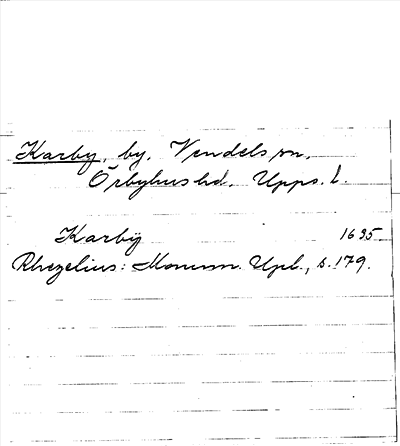 Karby, by, Vendels sn,
Örbyhus hd. Upps. l.
Karbÿ 1635
Rhezelius: Monum. Upl., s. 179.